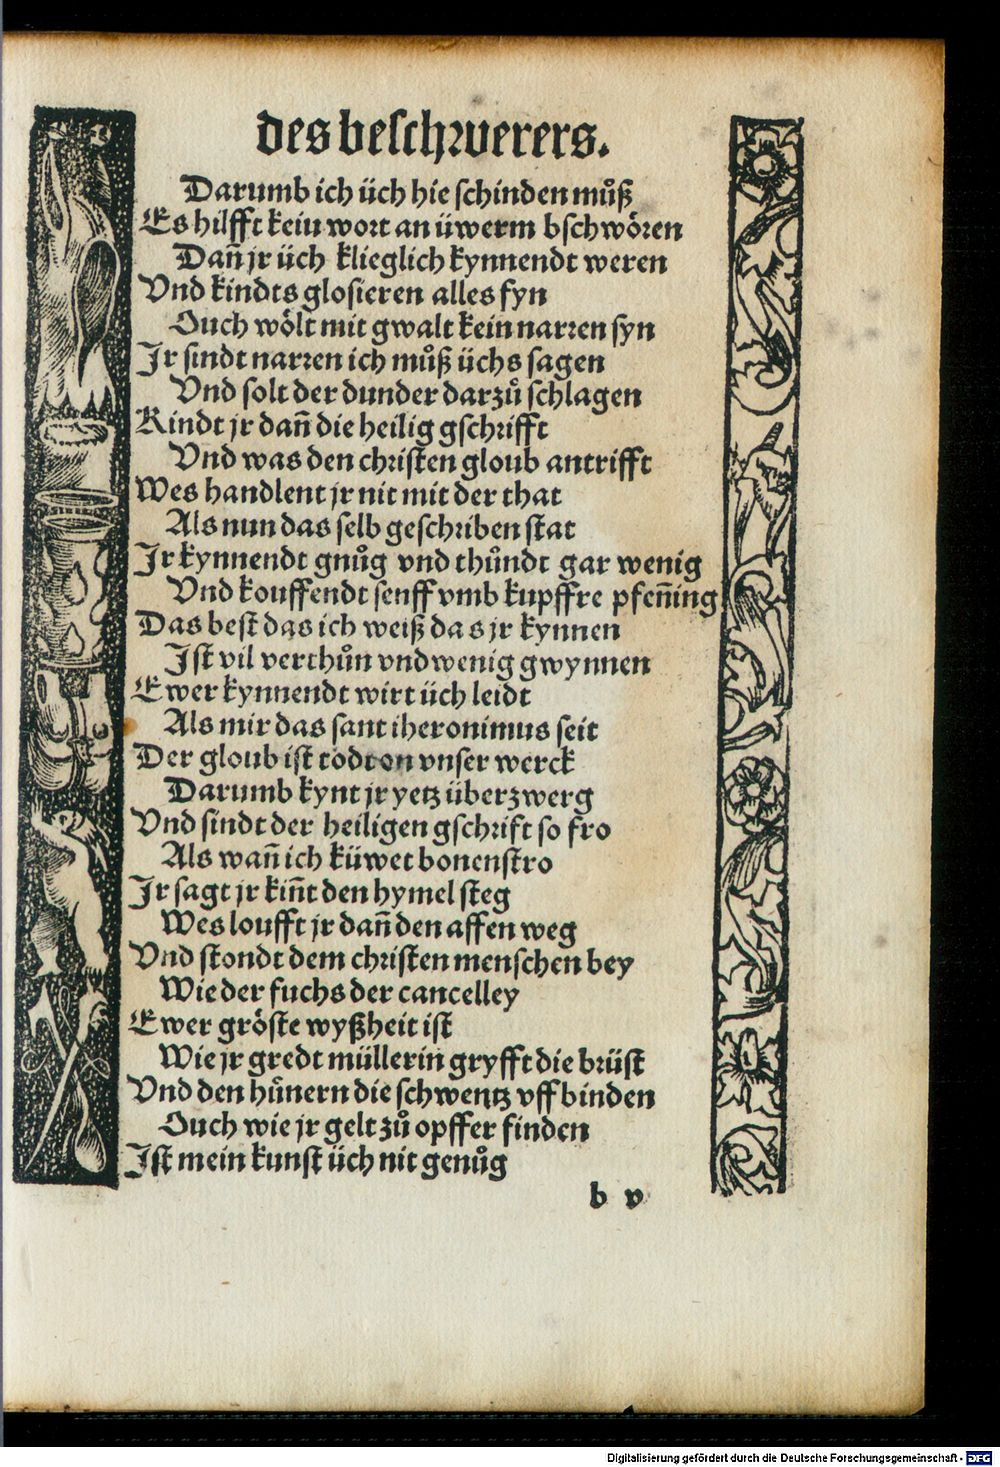 des beschwerers.
Darumb ich üch hie schinden můß
Es hilfft keiu wort an üwerm bschwören
Dañ jr üch klieglich kynnendt weren
Vnd kindts glosieren alles fyn
Ouch wölt mit gwalt kein narren syn
Jr sindt narren ich můß üchs sagen
Vnd solt der dunder darzů schlagen
Kindt jr dañ die heilig gschrifft
Vnd was den christen gloub antrifft
Wes handlent jr nit mit der that
Als nun das selb geschriben stat
Jr kynnendt gnůg vnd thůndt gar wenig
Vnd kouffendt senff vmb kupffre pfeñing
Das best das ich weiß das jr kynnen
Jst vil verthůn vnd wenig gwynnen
Ewer kynnendt wirt üch leidt
Als mir das sant iheronimus seit
Der gloub ist todt on vnser werck
Darumb kynt jr yetz überzwerg
Vnd sindt der heiligen gschrift so fro
Als wañ ich küwet bonenstro
Jr sagt jr kiñt den hymel steg
Wes loufft jr dañ den affen weg
Vnd stondt dem christen menschen bey
Wie der fuchs der cancelley
Ewer gröste wyßheit ist
Wie jr gredt müllerin gryfft die brüst
Vnd den hůnern die schwentz vff binden
Ouch wie jr gelt zů opffer finden
Jst mein kunst üch nit genůg
b v
Digitalisierung gefördert durch die Deutsche Forschungsgemeinschaft - DFG